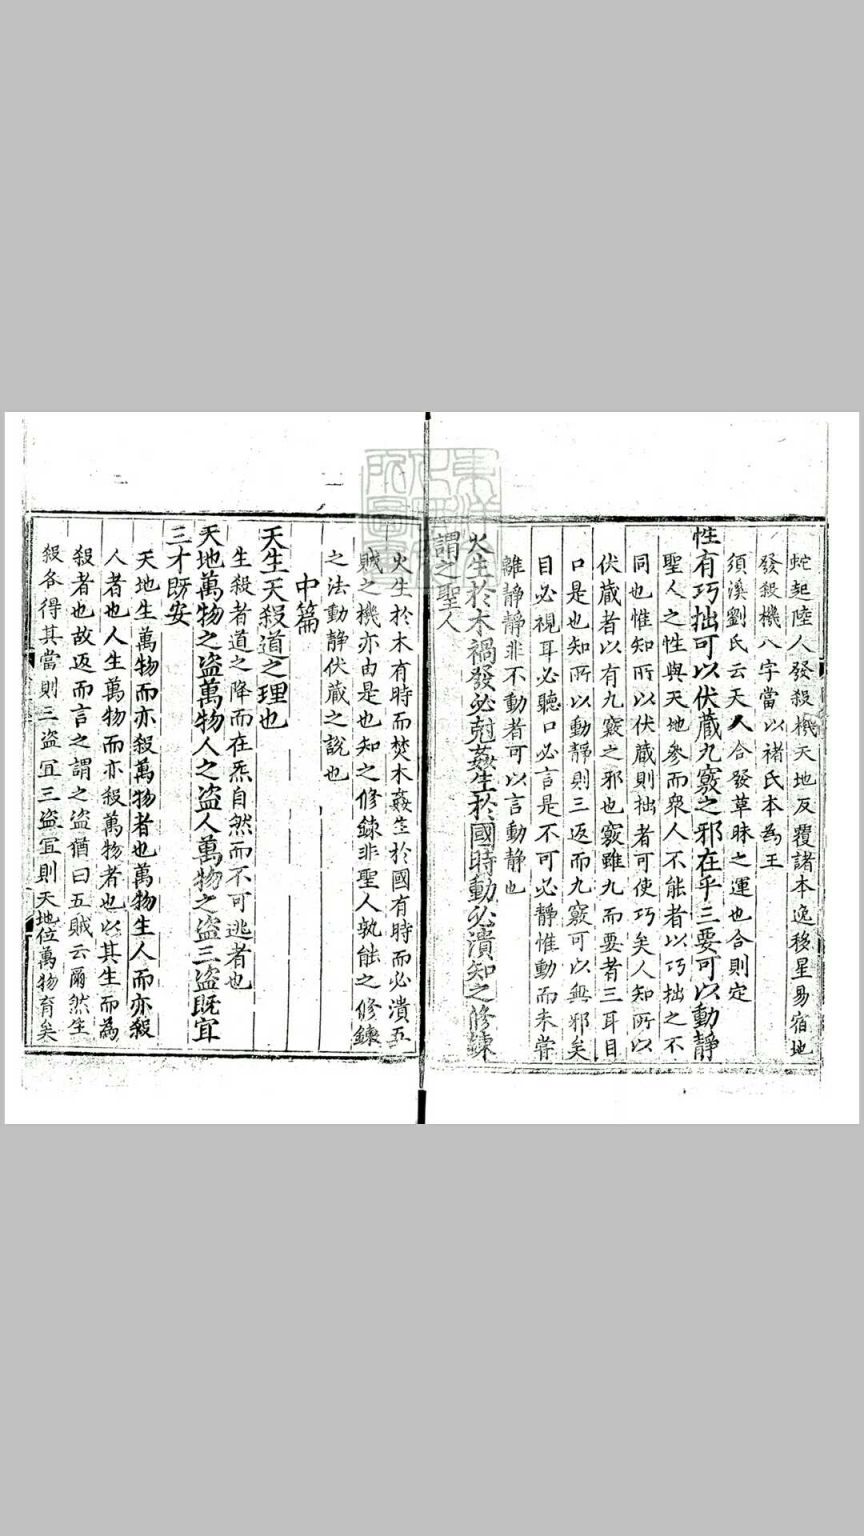 蛇起陸人發殺機天地反覆諸本逸移星易宿地
發殺機八字當以褚氏本為王
須溪劉氏云天人合發草昧之運也合則定
性有巧拙可以伏藏九竅之邪在乎三要可以動靜
聖人之性與天地參而衆人不能者以巧拙之不
同也惟知所以伏藏則拙者可使巧矣人知所以
伏藏者以有九竅之邪也竅雖九而要者三耳目
口是也知所以動靜則三返而九竅可以無邪矣
目必視耳必聽口必言是不可必靜惟動而未嘗
離靜靜非不動者可以言動靜也
火生於木禍發必尅姦生於國時動必潰知之修鍊
謂之聖人
火生於木有時而焚木姦生於國有時而必潰五
賊之機亦由是也知之修鍊非聖人孰能之修鍊
之法動靜伏藏之說也
中篇
天生天殺道之理也
生殺者道之降而在炁自然而不可逃者也
天地萬物之盜萬物人之盜人萬物之盜三盜既宜
三才既安
天地生萬物而亦殺萬物者也萬物生人而亦殺
人者也人生萬物而亦殺萬物者也以其生而為
殺者也故返而言之謂之盜猶曰五賊云爾然生
殺各得其當則三盜冝三盜冝則天地位萬物育矣